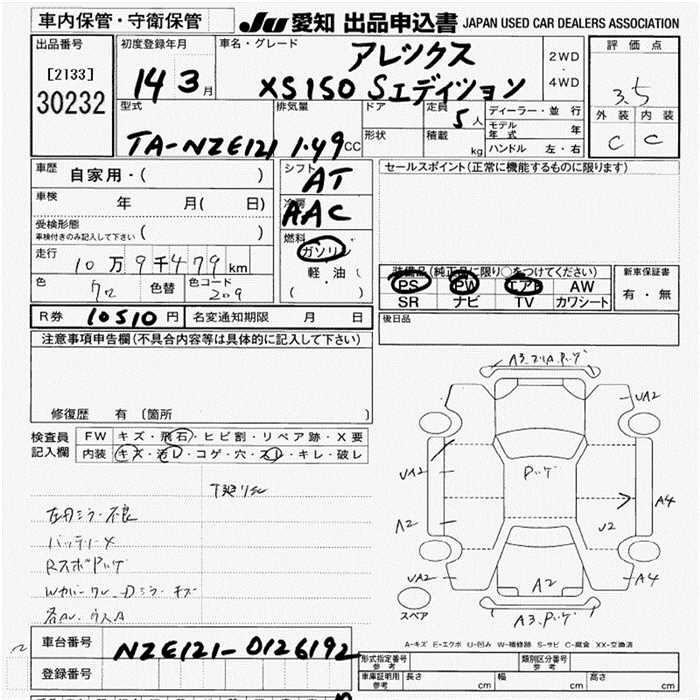 車内保管・守衛保管
JU 愛知 出品申込書 JAPAN USED CAR DEALERS ASSOCIATION
出品番号
[2133]
30232
初度登録年月
14 3 月
車名・グレード
アレックス
XS150 Sエディション
2WD
・
4WD
評価点
3.5
外装 内装
C C
型式
TA-NZE121
排気量
1.49 CC
ドア
形状
定員
5 人
積載
kg
ディーラー・並行
モデル年式 年
ハンドル 左・右
車歴
自家用・( )
車検
年 月( 日)
受検形態
車検付きのみ記入して下さい ( )
走行
10万9千479 km
色
クロ
色替
色コード
209
シフト
AT
冷房
AAC
燃料
ガソリン
軽・油
( )
セールスポイント(正常に機能するものに限ります)
装備品(純正品に限り○をつけてください)
PS PW エアB AW
SR ナビ TV カワシート
新車保証書
有・無
R券 10510 円 名変通知期限 月 日
後日品
注意事項申告欄(不具合内容等は具体的に記入して下さい)
修復歴 有 [箇所 ]
検査員記入欄
FW キズ・飛石・ヒビ割・リペア跡・X要
内装 キズ・汚レ・コゲ・穴・スレ・キレ・破レ
左右ミラー不良
バッテリーX
Rスポイラーハゲ
A2
UA2
UA2
A2
UA2
ハゲ
A4
U2
A4
A2
スペア
A-キズ E-エクボ U-凹み W-補修跡 S-サビ C-腐食 XX-交換済
車台番号
NZE121-0126192
登録番号
形式指定番号
参考
類別区分番号
参考
車庫証明用
参考
長さ cm 幅 cm 高さ cm